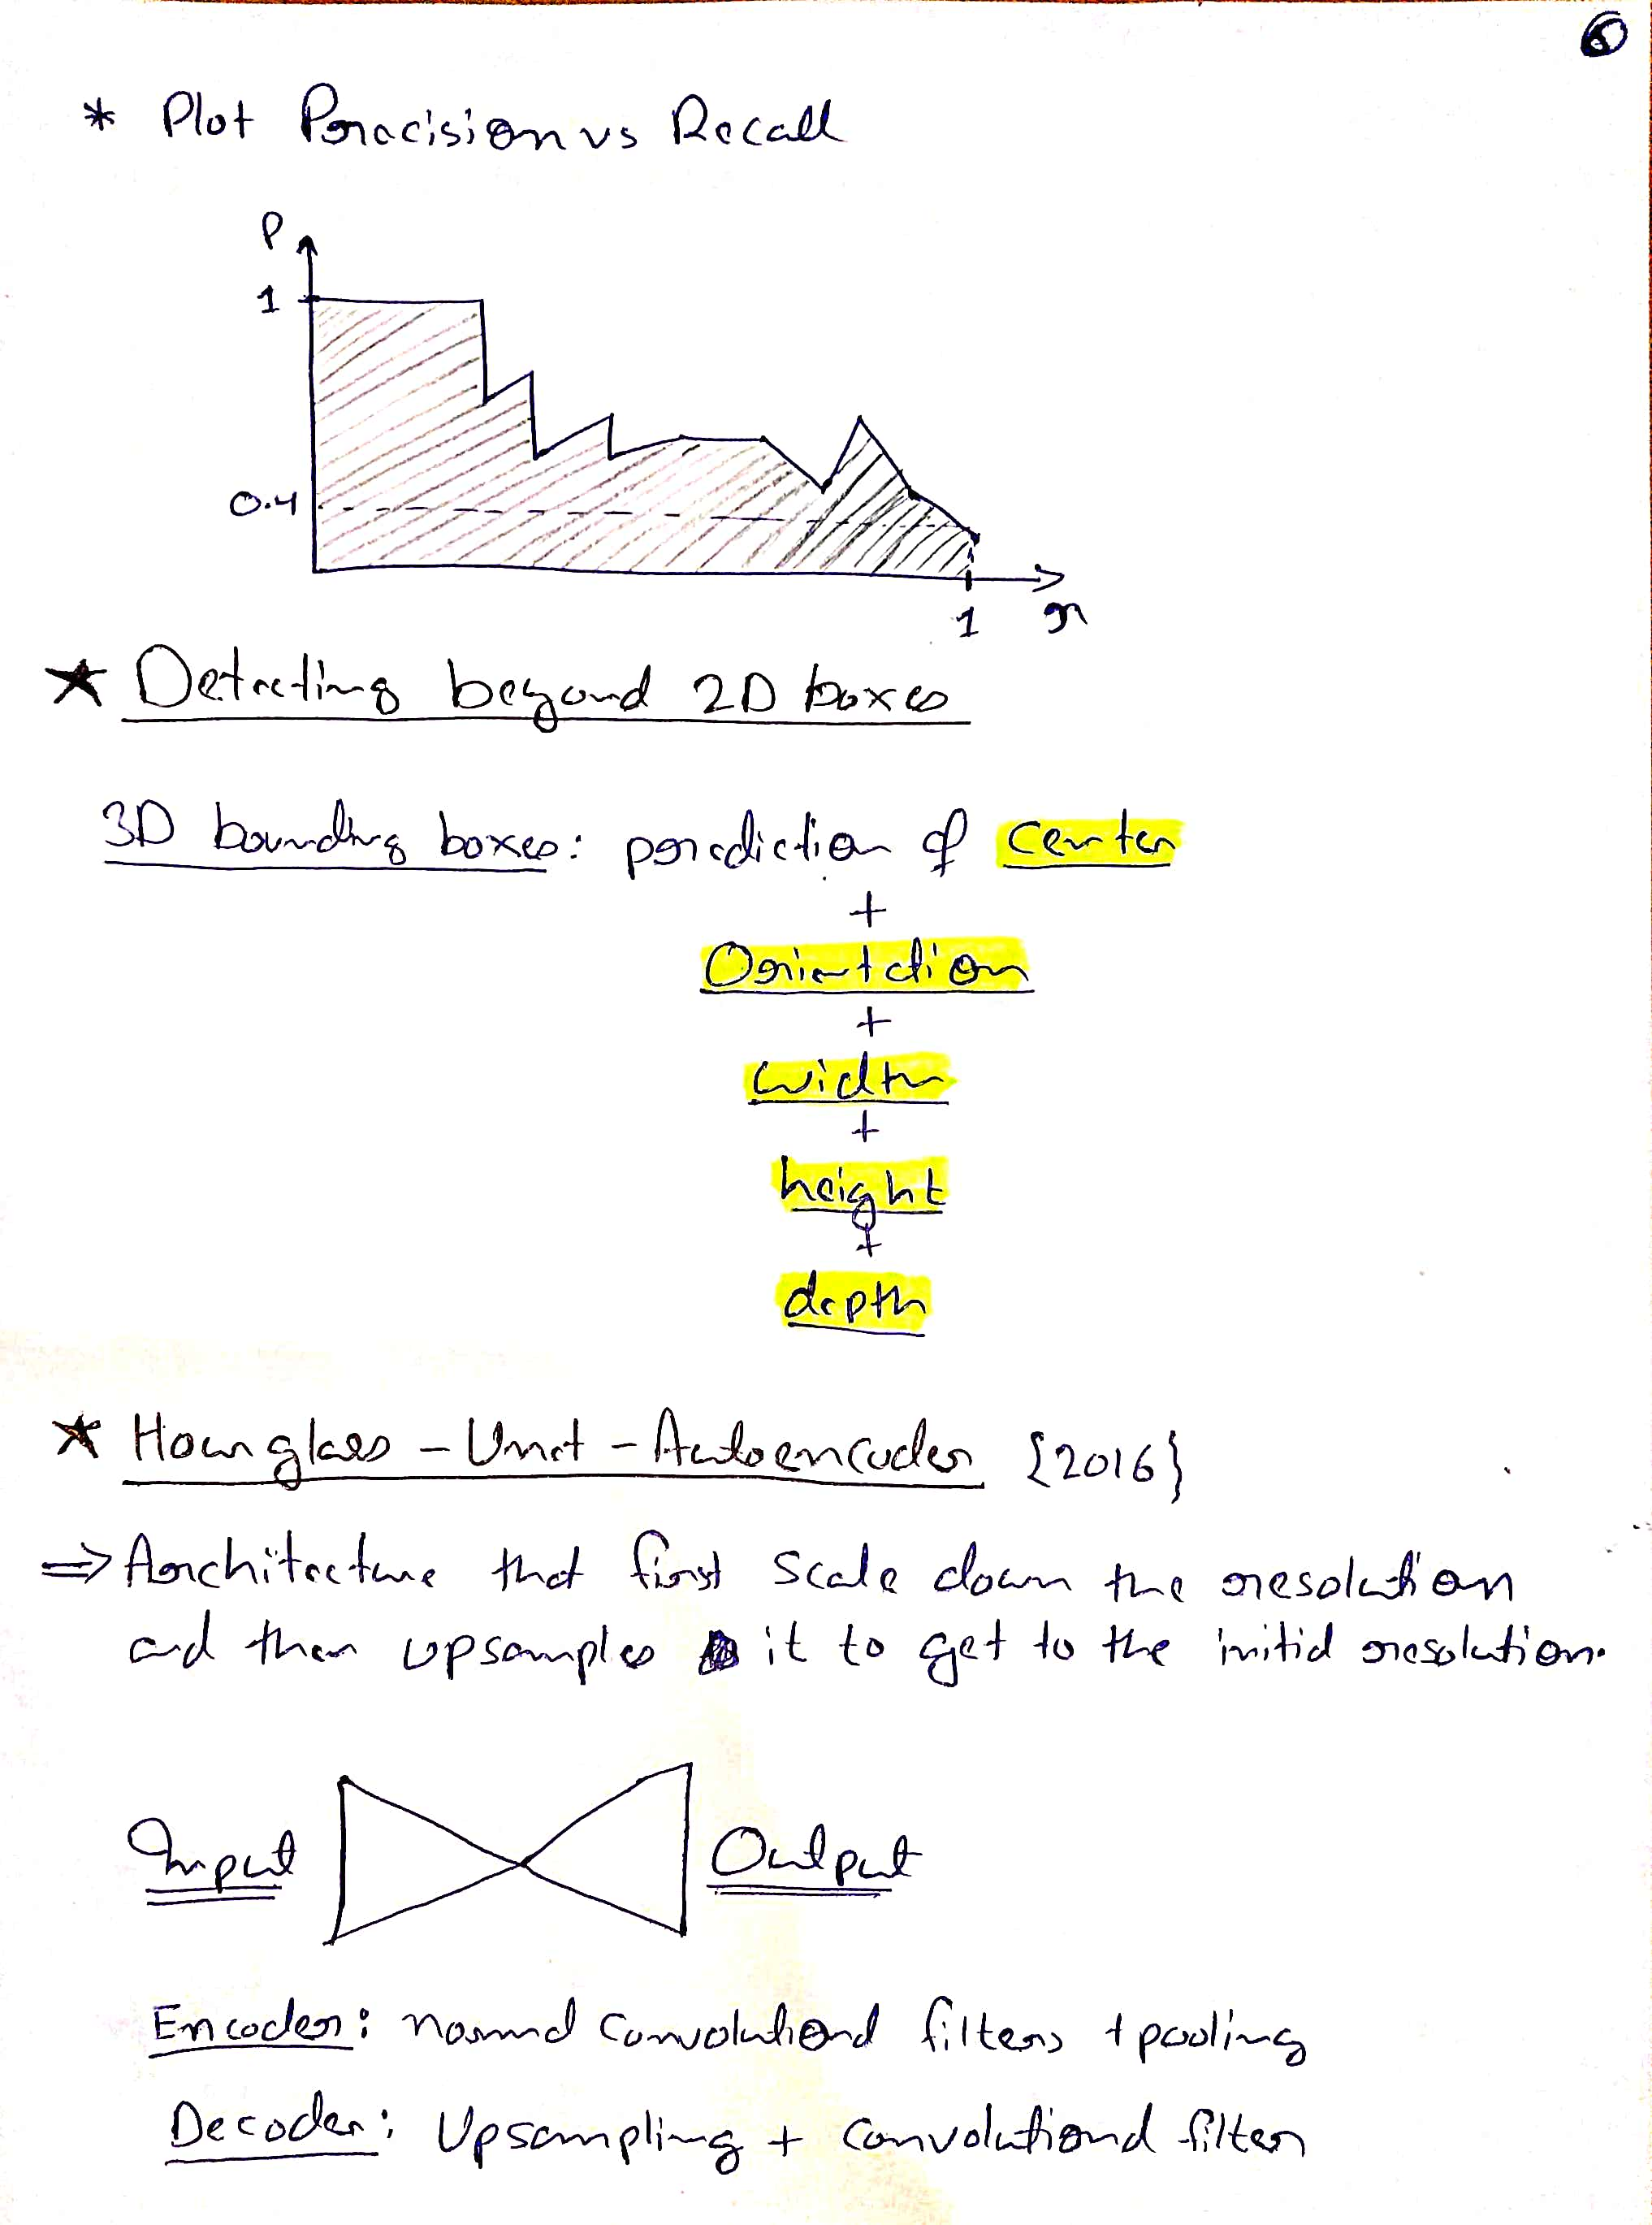 * Plot Precision vs Recall
P
1
0.4
1 r
* Detecting beyond 2D boxes
3D bounding boxes: prediction of center
+
Orientation
+
width
+
height
+
depth
* Hourglass - Unet - Autoencoder {2016}
⇒ Architecture that first scale down the resolution
and then upsamples it to get to the initial resolution.
Input Output
Encoder: normal convolutional filters + pooling
Decoder: Upsampling + convolutional filter